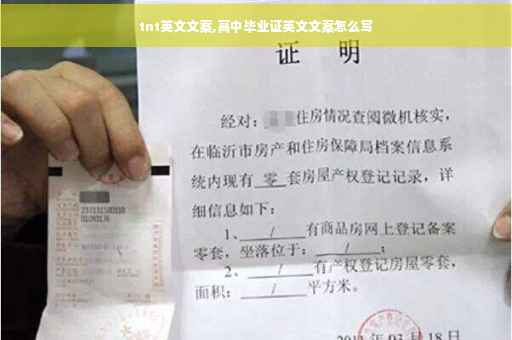 tnt英文文案,高中毕业证英文文案怎么写
证 明
经对: 住房情况查阅微机核实,
在临沂市房产和住房保障局档案信息系
统内现有 零 套房屋产权登记记录,详
细信息如下:
1、 / 有商品房网上登记备案
零套,坐落位于: / ;
2、 / 有产权登记房屋零套,
面积: / 平方米。
03 月 18 日